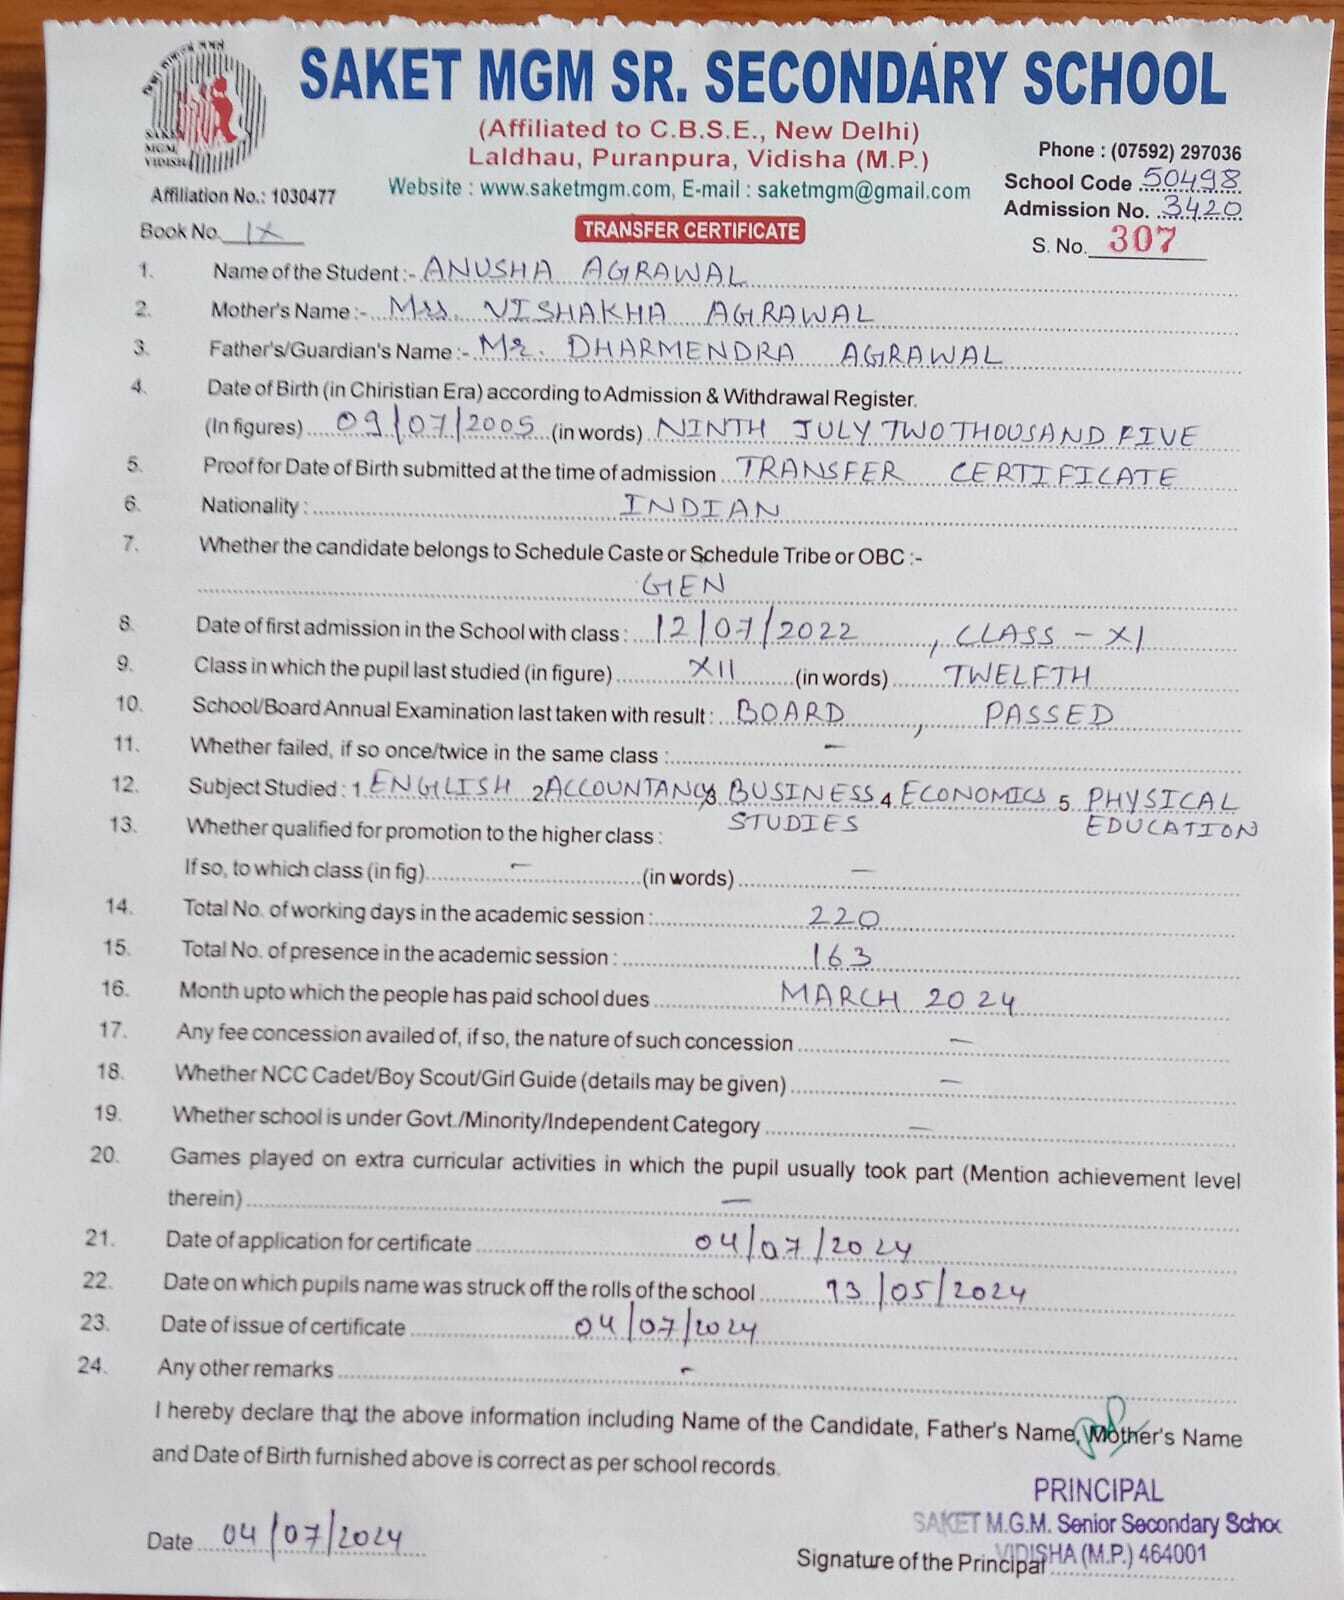 SAKET MGM SR. SECONDARY SCHOOL
(Affiliated to C.B.S.E., New Delhi)
Laldhau, Puranpura, Vidisha (M.P.)
Website : www.saketmgm.com, E-mail : saketmgm@gmail.com
SAKET
MGM,
VIDISHA
Affiliation No.: 1030477
Phone : (07592) 297036
School Code 50498
Admission No. 3420
Book No. IX
TRANSFER CERTIFICATE
S. No. 307
1. Name of the Student :- ANUSHA AGRAWAL
2. Mother's Name :- Mrs. VISHAKHA AGRAWAL
3. Father's/Guardian's Name :- Mr. DHARMENDRA AGRAWAL
4. Date of Birth (in Chiristian Era) according to Admission & Withdrawal Register.
(In figures) 09/07/2005 (in words) NINTH JULY TWO THOUSAND FIVE
5. Proof for Date of Birth submitted at the time of admission TRANSFER CERTIFICATE
6. Nationality : INDIAN
7. Whether the candidate belongs to Schedule Caste or Schedule Tribe or OBC :-
GEN
8. Date of first admission in the School with class : 12/07/2022, CLASS - XI
9. Class in which the pupil last studied (in figure) XII (in words) TWELFTH
10. School/Board Annual Examination last taken with result : BOARD, PASSED
11. Whether failed, if so once/twice in the same class : -
12. Subject Studied : 1 ENGLISH 2 ACCOUNTANCY 3 BUSINESS 4 ECONOMICS 5 PHYSICAL
STUDIES EDUCATION
13. Whether qualified for promotion to the higher class :
If so, to which class (in fig) - (in words) -
14. Total No. of working days in the academic session : 220
15. Total No. of presence in the academic session : 163
16. Month upto which the people has paid school dues MARCH 2024
17. Any fee concession availed of, if so, the nature of such concession -
18. Whether NCC Cadet/Boy Scout/Girl Guide (details may be given) -
19. Whether school is under Govt./Minority/Independent Category -
20. Games played on extra curricular activities in which the pupil usually took part (Mention achievement level
therein) -
21. Date of application for certificate 04/07/2024
22. Date on which pupils name was struck off the rolls of the school 13/05/2024
23. Date of issue of certificate 04/07/2024
24. Any other remarks -
I hereby declare that the above information including Name of the Candidate, Father's Name, Mother's Name
and Date of Birth furnished above is correct as per school records.
PRINCIPAL
SAKET M.G.M. Senior Secondary Schoo
VIDISHA (M.P.) 464001
Date 04/07/2024
Signature of the Principal